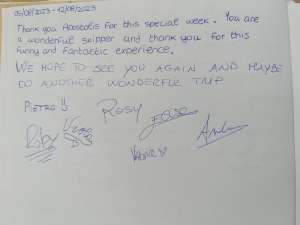 05/08/2023 - 12/08/2023
Thank you Apostolis for this special week. You are
a wonderful skipper and thank you for this
funny and fantastic experience.
WE HOPE TO SEE YOU AGAIN AND MAYBE
DO ANOTHER WONDERFUL TRIP
PIETRO
ROSY